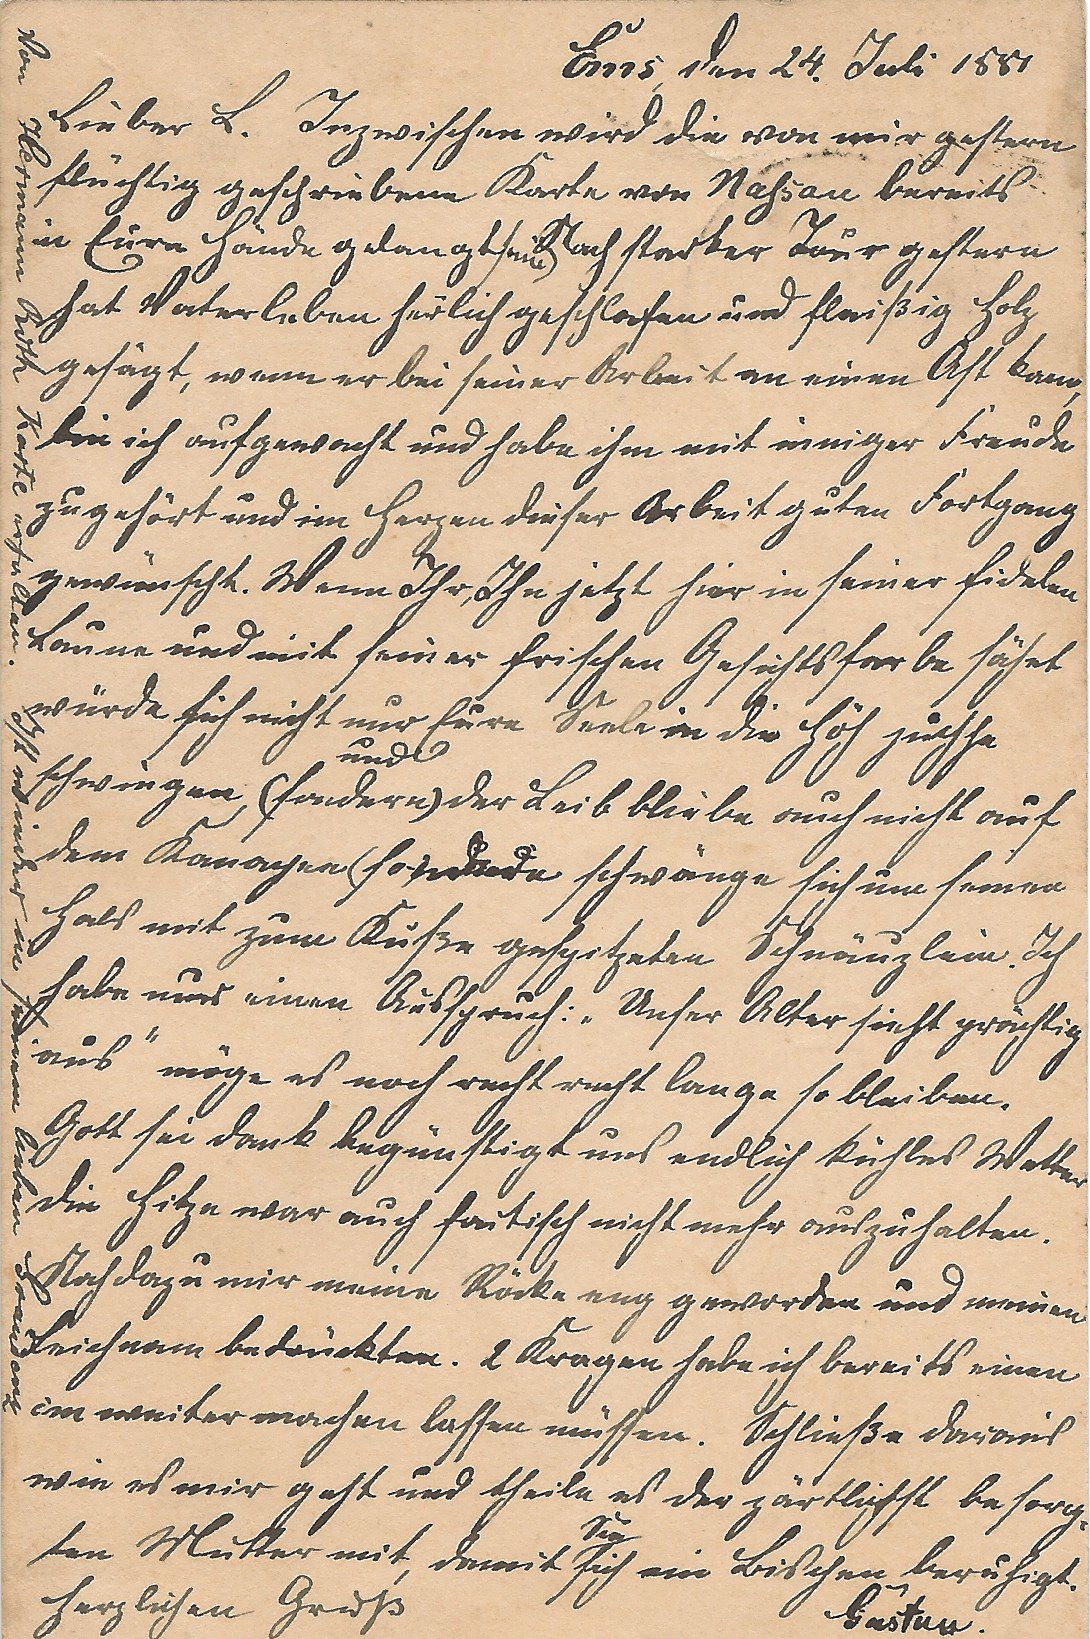 Ems, den 24. Juli 1881
Lieber L. Inzwischen wird die von mir gestern
flüchtig geschriebene Karte von Nassau bereits
in Eure Hände gelangt (sein) Nach starker Tour gestern
hat Vaterleben herlich geschlafen und fleißig Holz
gesägt, wenn er bei seiner Arbeit an einen Ast kam,
bin ich aufgewacht und habe ihm mit inniger Freude
zugehört und im Herzen dieser Arbeit guten Fortgang
gewünscht. Wenn Ihr, Ihn jetzt hier in seiner fidelen
Laune und mit seiner frischen Gesichtsfarbe sähet
würde sich nicht nur Eure Seele in die Höh juchhe
und
schwingen, (sondern) der Leib bliebe auch nicht auf
dem Kanapee schwänge sich um seinen
Hals mit zum Kuße gespitzeten Schnäuzlein. Ich
habe nur einen Ausspruch: „Unser Alter sieht prächtig
aus" möge es noch recht recht lange so bleiben.
Gott sei dank begünstigt uns endlich kühles Wetter
die Hitze war auch factisch nicht mehr auszuhalten.
Noch dazu mir meine Röcke eng geworden und meinen
Leichnam bedrückten. 2 Kragen habe ich bereits einen
cm weiter machen lassen müssen. Schließe daraus
wie es mir geht und theile es der zärtlichst besorg-
Sie
ten Mutter mit, damit sich ein Bischen beruhigt.
Herzlichen Gruß
Gustav.
Von Hermann Roth Karte erhalten. Ist wieder in seinem lieben